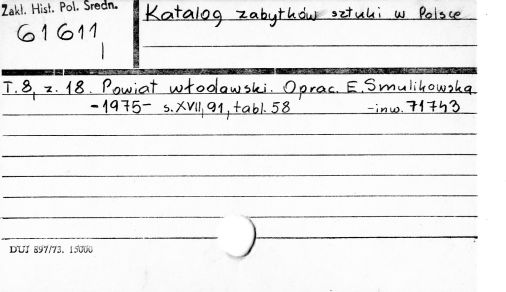 Zakł. Hist. Pol. Średn.
61611
I
Katalog zabytków sztuki w Polsce
T. 8, z. 18. Powiat włodawski. Oprac. E. Smulikowska
-1975- s. XVII, 91, tabl. 58 -inw. 71743
DUJ 897/73. 15000